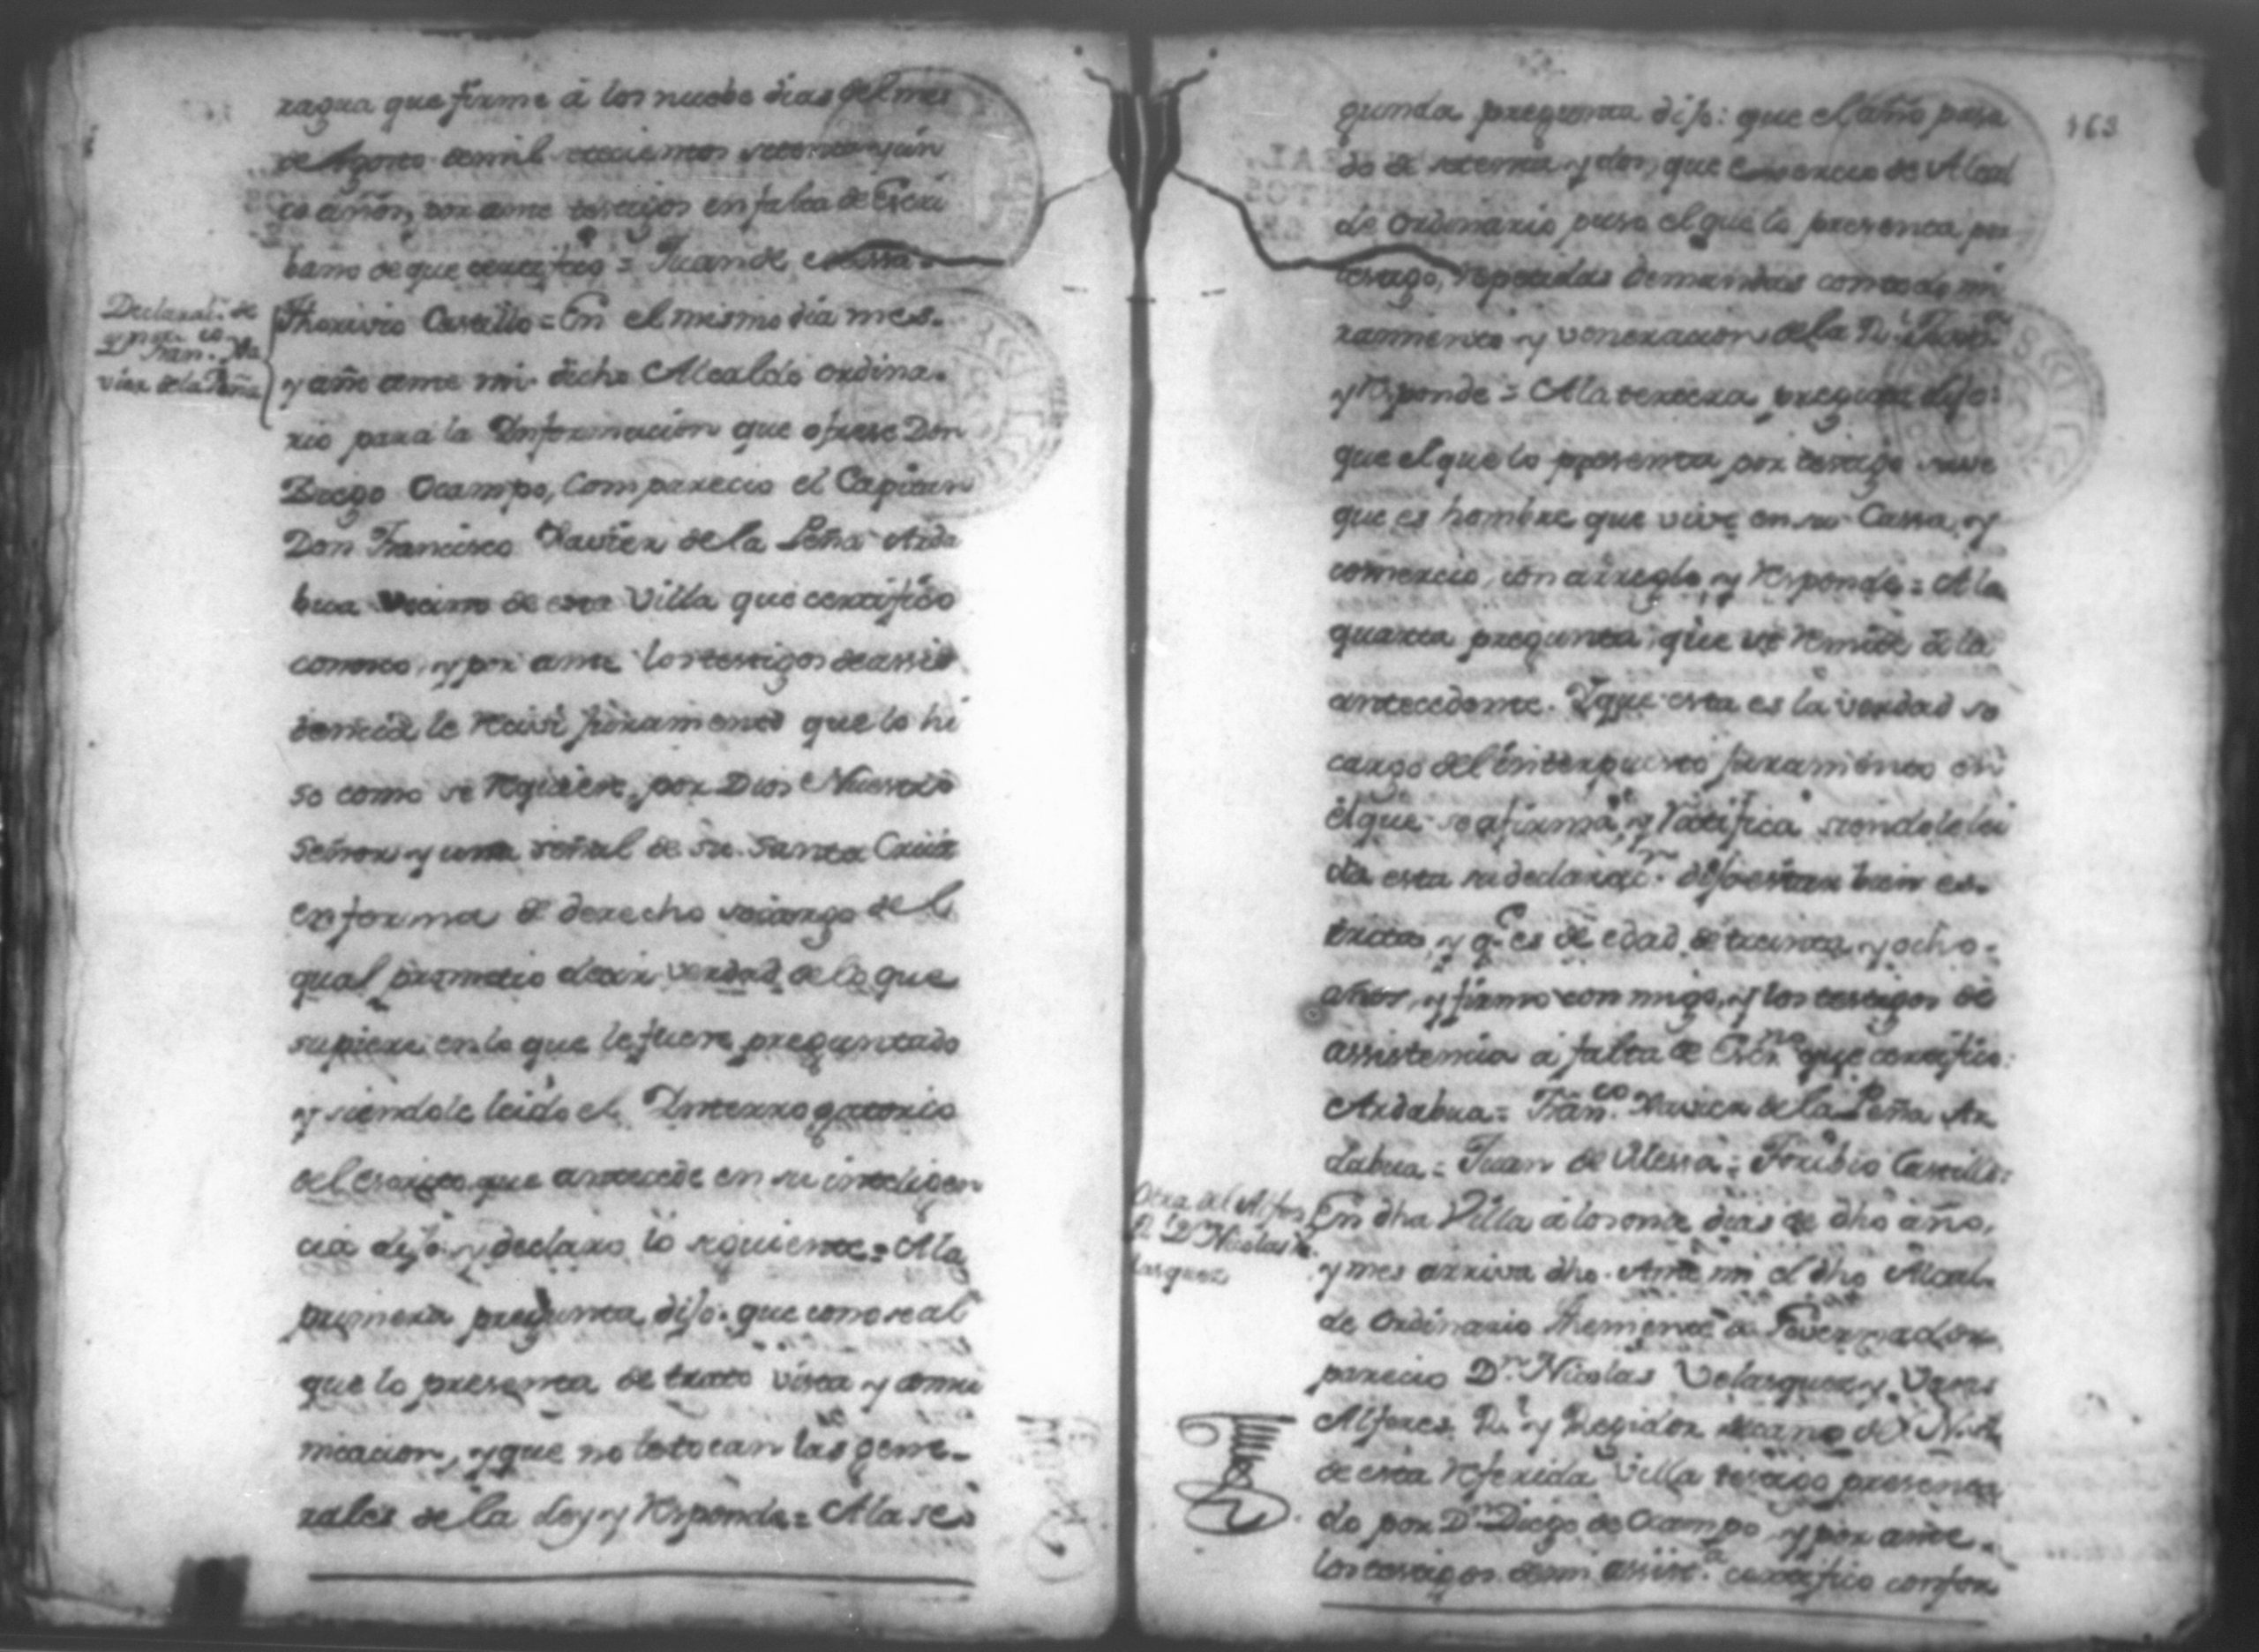 ragua que firme á los nuebe dias del mes
de Agosto de mil setecientos setenta y sin
co años, por ante testigos en falta de Escri
bano de que certifico = Juan de Messa =
Declarac.n de
D.n Fran.co Xa
vier de la Peña
Thorivio Castillo = En el mismo dia mes
y año ante mi dicho Alcalde ordina
rio para la Informacion que ofrese Don
Diego Ocampo, Comparecio el Capitan
Don Francisco Xavier de la Peña Arda
bua vecino de esta Villa que certifico
conosco, y por ante los testigos de assis
tencia le recivi juramento que lo hi
so como se requiere, por Dios Nuestro
Señor y una señal de su Santa Cruz
en forma de derecho socargo del
qual prometio decir verdad de lo que
supiere en lo que le fuere preguntado
y siendole leido el Interrogatorio
del escrito que antecede en su inteligen
cia dijo y declaro lo siguiente = A la
primera pregunta dijo: que conose al
que lo presenta de trato vista y comu
nicacion, y que no le tocan las gene
rales de la Ley y responde = A la se
163
gunda pregunta dijo: que el año pasa
do de setenta y dos, que exercio de Alcal
de ordinario puso el que lo presenta por
testigo, repetidas demandas con todo mi
ramiento y veneracion de la R.l
y responde = A la tercera pregunta dijo:
que el que lo presenta por testigo save
que es hombre que vive en su Cassa, y
comercio, con arreglo, y responde = A la
quarta pregunta, que se remite á la
antecedente. Y que esta es la verdad so
cargo del interpuesto juramento en
el que se afirma, y ratifica siendole lei
da esta su declarac.n dijo estar bien es
crita, y q.e es de edad de treinta y ocho
años, y firmo con migo, y los testigos de
assistencia á falta de Escr.no que certifico =
Ardabua = Fran.co Xavier de la Peña Ar
dabua = Juan de Messa = Toribio Castillo =
Otra del Alfer.
R.l D.n Nicolas Ve
lasquez
En dha Villa á los onse dias de dho año,
y mes arriva dho. Ante mi el dho Alcal
de Ordinario Theniente de Governador
parecio D.n Nicolas Velasquez y
Alferes R.l y Regidor decano de
de esta referida Villa testigo presenta
do por D.n Diego de Ocampo y por ante
los testigos de mi assist.a certifico conosco